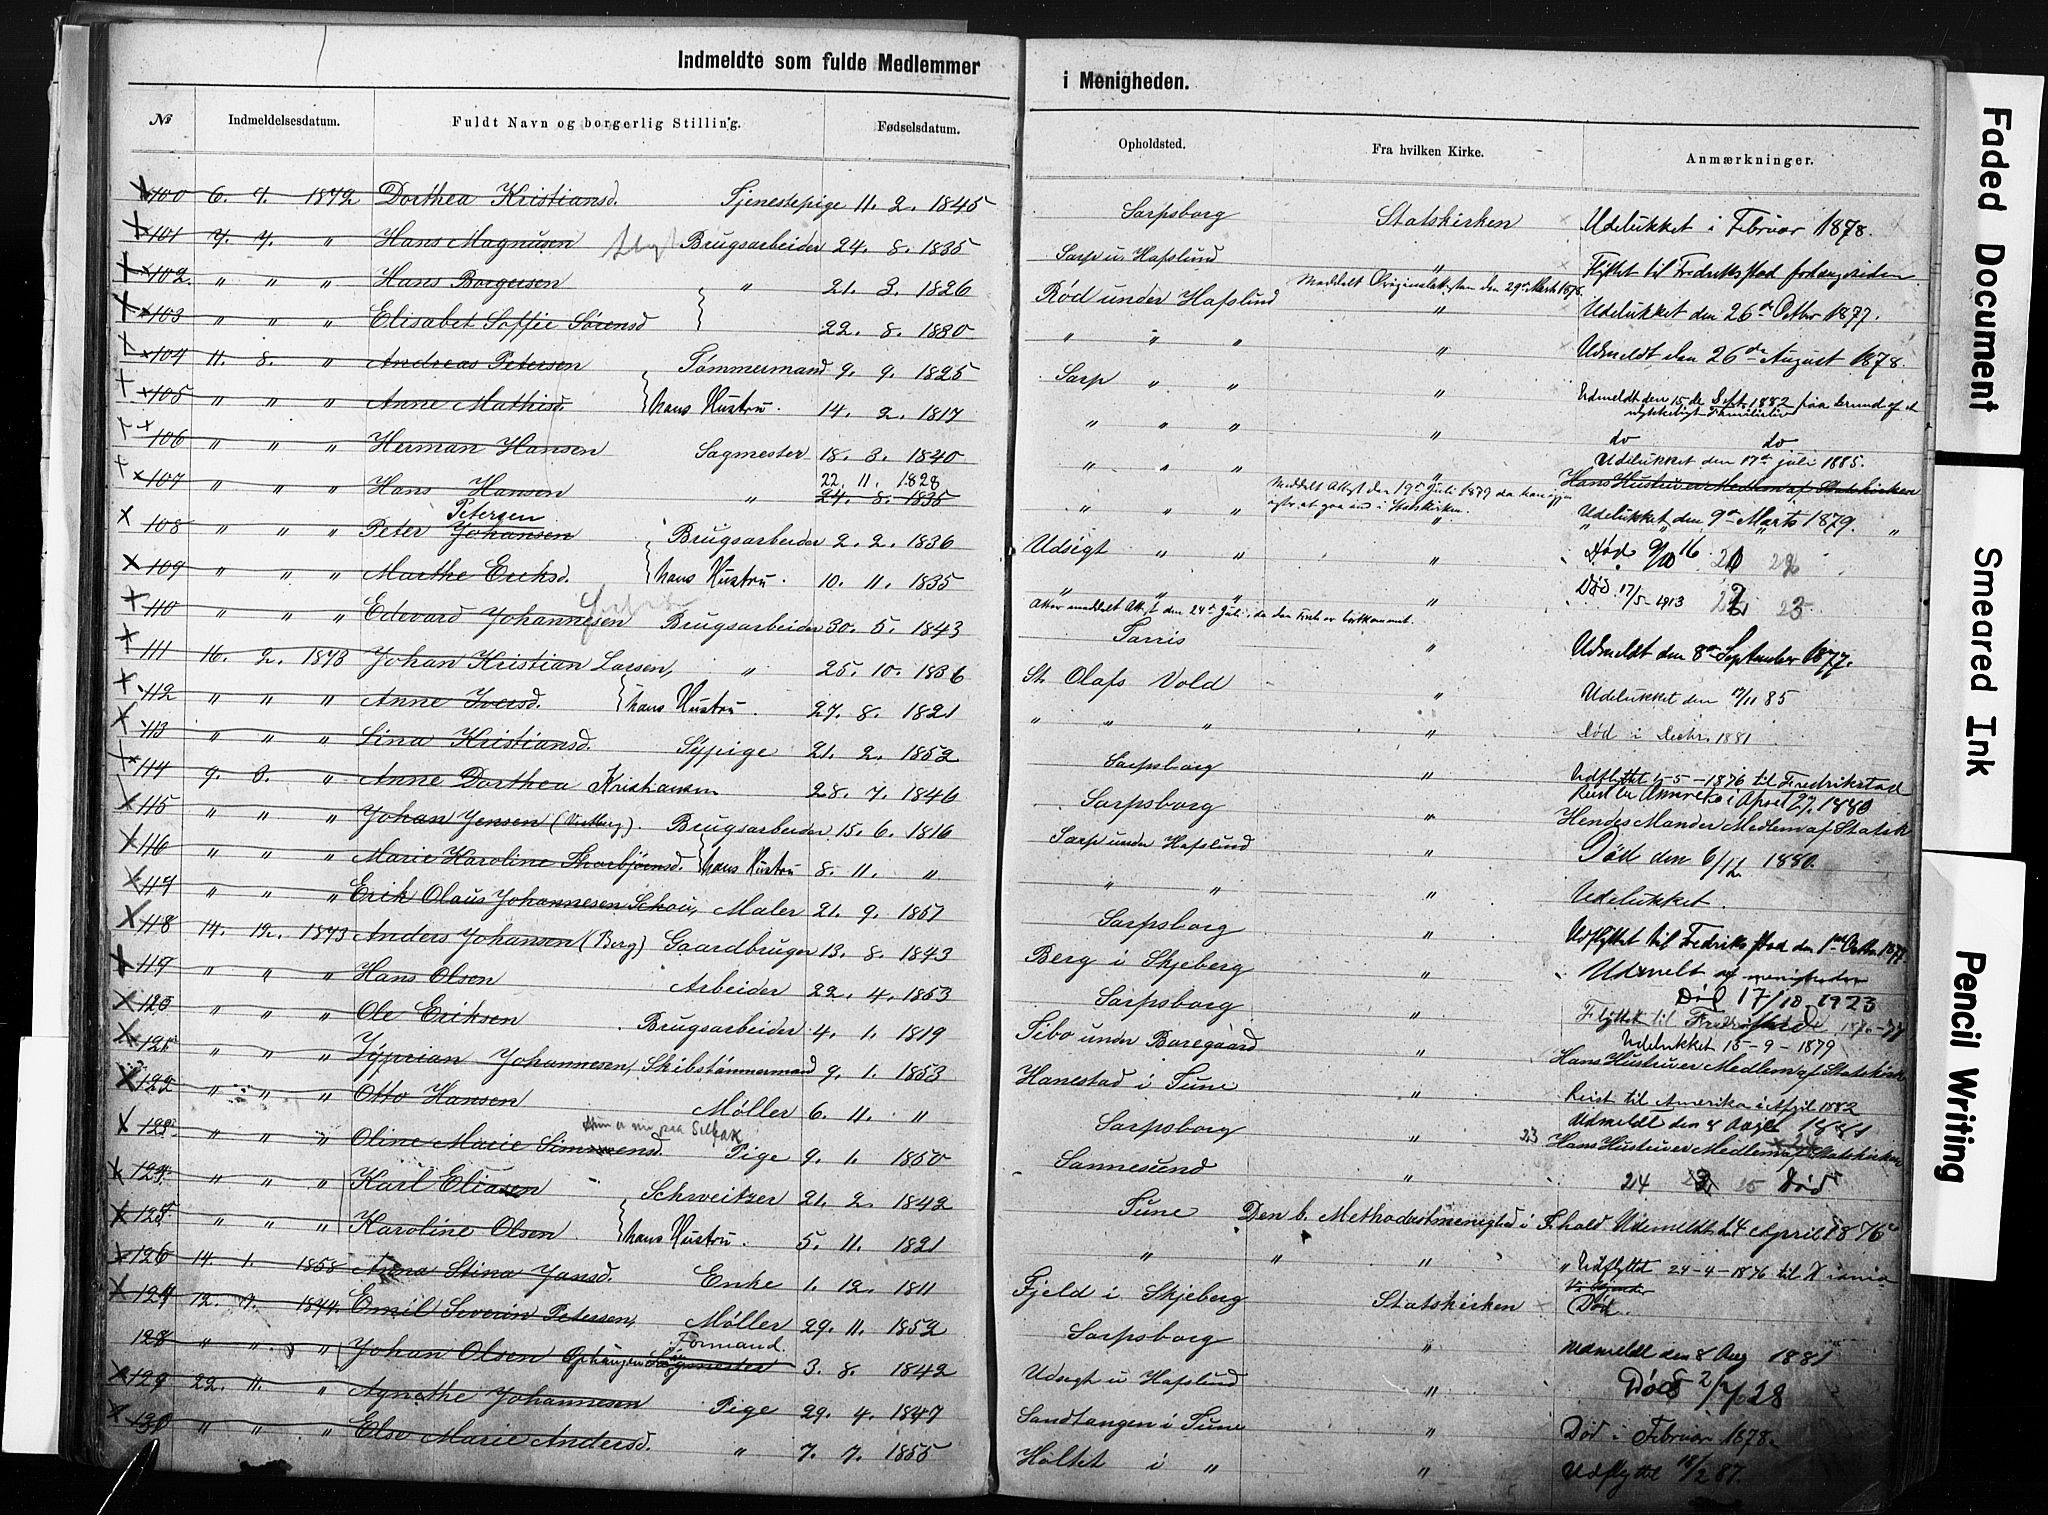 Indmeldte som fulde Medlemmer i Menigheden.
№ Indmeldelsesdatum. Fuldt Navn og borgerlig Stilling. Fødselsdatum. Opholdsted. Fra hvilken Kirke. Anmærkninger.
100 6. 7. 1872 Dorthea Kristiansd. Tjenestepige 11. 2. 1845 Sarpsborg Statskirken Udelukket i Februar 1878.
101 7. 7. " Hans Magnusen Brugsarbeider 24. 8. 1835 Sarp u. Hafslund " Flyttet til Fredrikstad
102 " " " Hans Borgersen " 21. 3. 1826 Rød under Hafslund " Udelukket den 26de Octbr 1877.
103 " " " Elisabet Soffie Sørensd 22. 8. 1830 " " " " Udmeldt den 26de August 1878.
104 11. 8. " Andreas Petersen Tømmermand 9. 9. 1825 Sarp " " " Udmeldt den 15de Septr 1882 paa Grund af et ulykkeligt Familieliv
105 " " " Anne Mathisd. hans Hustru. 14. 2. 1817 " " " " do do
106 " " " Herman Hansen Sagmester 18. 3. 1840 " " " " Udelukket den 17de juli 1885.
Hans Hustru er Medlem af Statskirken
107 " " " Hans Hansen " 22. 11. 1828
24. 8. 1835 " " " Meddelt Attest den 19de Juli 1879 da han igjen agter at gaa ind i Statskirken. " Udelukket den 9de Marts 1879.
108 " " " Peter Petersen Johansen Brugsarbeider 2. 2. 1836 Udsigt " " " Død 9/10 16.
109 " " " Marthe Eriksd. hans Hustru. 10. 11. 1835 " " " " Død 17/5-1913
110 " " " Edevard Johannesen Brugsarbeider 30. 5. 1843 Tarris " Udmeldt den 8de September 1877.
111 16. 2. 1873 Johan Kristian Larsen, " 25. 10. 1836 St. Olafs Vold " Udelukket den 17/11 85
112 " " " Anne Iversd. hans Hustru. 27. 8. 1821 " " " " Død i Decbr. 1881
113 " " " Lina Kristiansd. Sypige 21. 2. 1852 Sarpsborg " Udflyttet 15-5-1876 til Fredrikstad
114 9. 3. " Anne Dorthea Kristiansen 28. 7. 1846 Sarpsborg " Reist til Amerika i April 27. 1880
Hendes Mand er Medlem af Statsk
115 " " " Johan Jensen Brugsarbeider 15. 6. 1816 Sarp under Hafslund " Død den 6/12 1880.
116 " " " Marie Karoline Thorbjørnsd. hans Hustru 8. 11. " " " " Udelukket.
117 " " " Erik Olaus Johannesen Schou, Maler 21. 9. 1857 Sarpsborg " Udflyttet til Fredrikstad den 1ste Octbr. 1877.
118 14. 12. 1873 Anders Johansen (Berg) Gaardbruger 13. 8. 1843 Berg i Skjeberg " Udmeldt af menigheden
119 " " " Hans Olsen Arbeider 22. 4. 1853 Sarpsborg " Død 17/10-1923
Flyttet til Fredrikstad 1876-77
120 " " " Ole Eriksen Brugsarbeider 4. 1. 1819 Tibo under Boregaard " Udelukket 15-9-1879
Hans Hustru er Medlem af Statskirk
121 " " " Syprian Johannesen, Skibstømmermand 9. 1. 1853 Hanestad i Tune " Reist til Amerika i April 1882
122 " " " Otto Hansen Møller 6. 11. " Sarpsborg " Udmeldt den 8 Augst 1881
Hans Hustru er Medlem af Statskirken
Hun er nu paa Selbak
123 " " " Oline Marie Simmensd. Pige 9. 1. 1850 Sannesund " 24 25 Død
124 " " " Karl Eliasen Schweitzer 21. 2. 1842 Tune Den b. Methodistmenighed i Fr.hald Udmeldt 24 April 1876
125 " " " Karoline Olsen hans Hustru. 5. 11. 1821 " " " " Udflyttet 24-4-1876 til Xiania
126 14. 1. 1858 Anna Stina Jansd. Enke 1. 12. 1811 Fjeld i Skjeberg Statskirken Død.
127 12. 7. 1874. Emil Severin Petersen, Møller 29. 11. 1852 Sarpsborg " Udmeldt den 8 Aug 1881
128 " " " Johan Olsen Ophaugen Formand. Sagmester 3. 8. 1842 Udsigt u Hafslund " Død 2/7/28
129 22. 11. " Agnethe Johannesen Pige 29. 4. 1847 Sandtangen i Tune " Død i Februar 1878.
130 " " " Else Marie Andersd. " 7. 7. 1855 Holtet i " " Udflyttet 18/2 87.
Faded Document
Smeared Ink
Pencil Writing